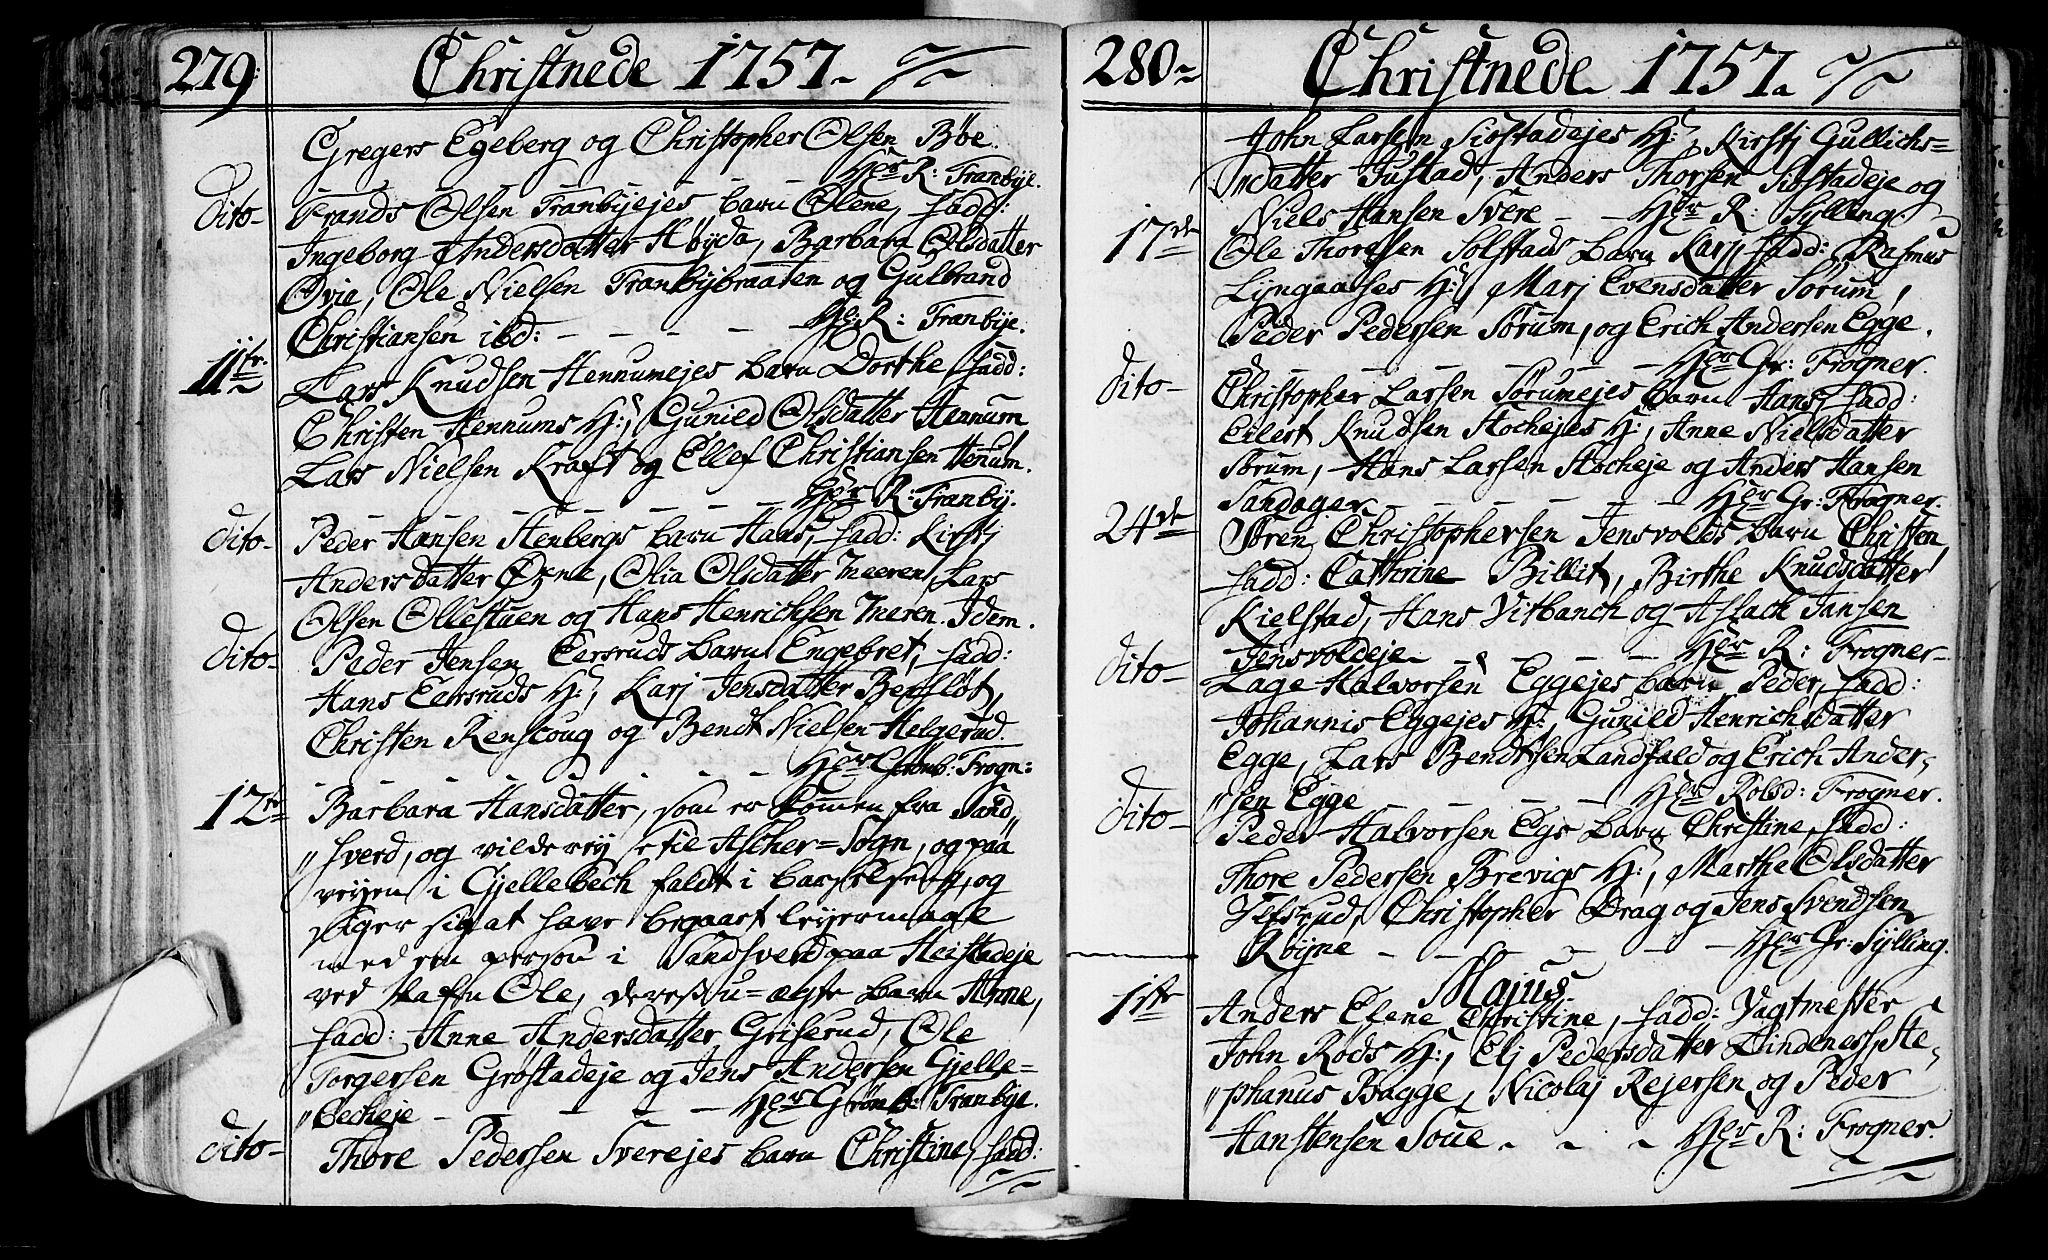 279 Christnede 1757
Gregers Egeberg og Christopher Olsen Böe.
Her R: Tranbÿe.
Dito - Frands Olsen Tranbÿejes barn Olene, fadd:
Ingeborg Andersdatter Höÿda, Barbara Olsdatter
Ovie, Ole Nielsen Tranbÿbraaten og Gulbrand
Christiansen ibd: - - - - He: R: Tranbÿe.
11te Lars Knudsen Hennumejes barn Dorthe, fadd:
Christen Hennums H:, Gunild Olsdatter Hennum
Lars Nielsen Kraft og Ellef Christiansen Henum.
Her R: Tranbÿ.
dito - Peder Hansen Stenbergs barn Hans, fadd: Kirstj
Andersdatter, Olia Olsdatter Meeren, Lars
Olsen Ollestuen og Hans Henrichsen Meren. Idem.
dito - Peder Jensen Eersruds barn Engebret, fadd:
Hans Eersruds H:, Karj Jensdatter,
Christen Renscoug og Bendt Nielsen Helgerud.
- - - Her Grönb: Frogn:
12te Barbara Hansdatter, som er komen fra Sand„
„sverd, og vilde rej se til Ascher=Sogn, og paa
rejsen i Gjellebech faldt i barselseng, og
siger sig at have begaaet lejermaal
med en person i Sandsverd paa Heistadeje
ved nafn Ole, deres u=ægte barn Anne,
fadd: Anne Andersdatter Griserud, Ole
Torgersen Gröstadeje og Jens Andersen Gjelle=
„becheje - - - - Her Grönb: Tranbÿe.
dito - Thore Pedersen Sverejes barn Christine, fadd:
280 Christnede 1757
John Larsen Solstadejes H:, Kirstj Gullichs=
„datter Justad, Anders Thorsen Solstadeje og
Niels Hansen Svere - - Her R: Sÿlling.
17de Ole Thoresen Solstads barn Karj, fadd: Rasmus
Lÿngaasses H:, Marj Evensdatter Sörum,
Peder Pedersen Sörum, og Erich Andersen Egge.
- - - - - - - Her Gr: Frogner.
dito - Christopher Larsen Sörumejes barn Hans, fadd:
Eilert Knudsen Stochejes H:, Anne Nielsdatter
Sörum, Hans Larsen Stocheje og Anders Hansen
Sandager - - - - - Her Gr: Frogner.
24de Sören Christophersen Jensvolds barn Christen,
fadd: Cathrine Billit, Birthe Knudsdatter
Kielstad, Hans Vitbanch og Aslach Jansen
Jensvoldeje - - - - Her R: Frogner.
dito - Lage Halvorsen Eggejes barn Peder, fadd:
Johannis Eggejes H:, Gunild Henrichsdatter
Egge, Lars Bendtsen Landfald og Erich Ander„
„sen Egge - - - - Her Rolsd: Frogner.
dito - Peder Halvorsen Egs barn Christine, fadd:
Thore Pedersen Brevigs H:, Marthe Olsdatter
Ulfsrud, Christopher Drag og Jens Svendsen
Röjne - - - - - Her Gr: Sÿlling.
Majus.
1ste Anders Elene Christine, fadd: Vagtmester
John Röds H:, Elj Pedersdatter Dindeness, Ste„
„phanus Bagge, Nicolaj Rejersen og Peder
Hanstensen Soue - - - Her R: Frogner.